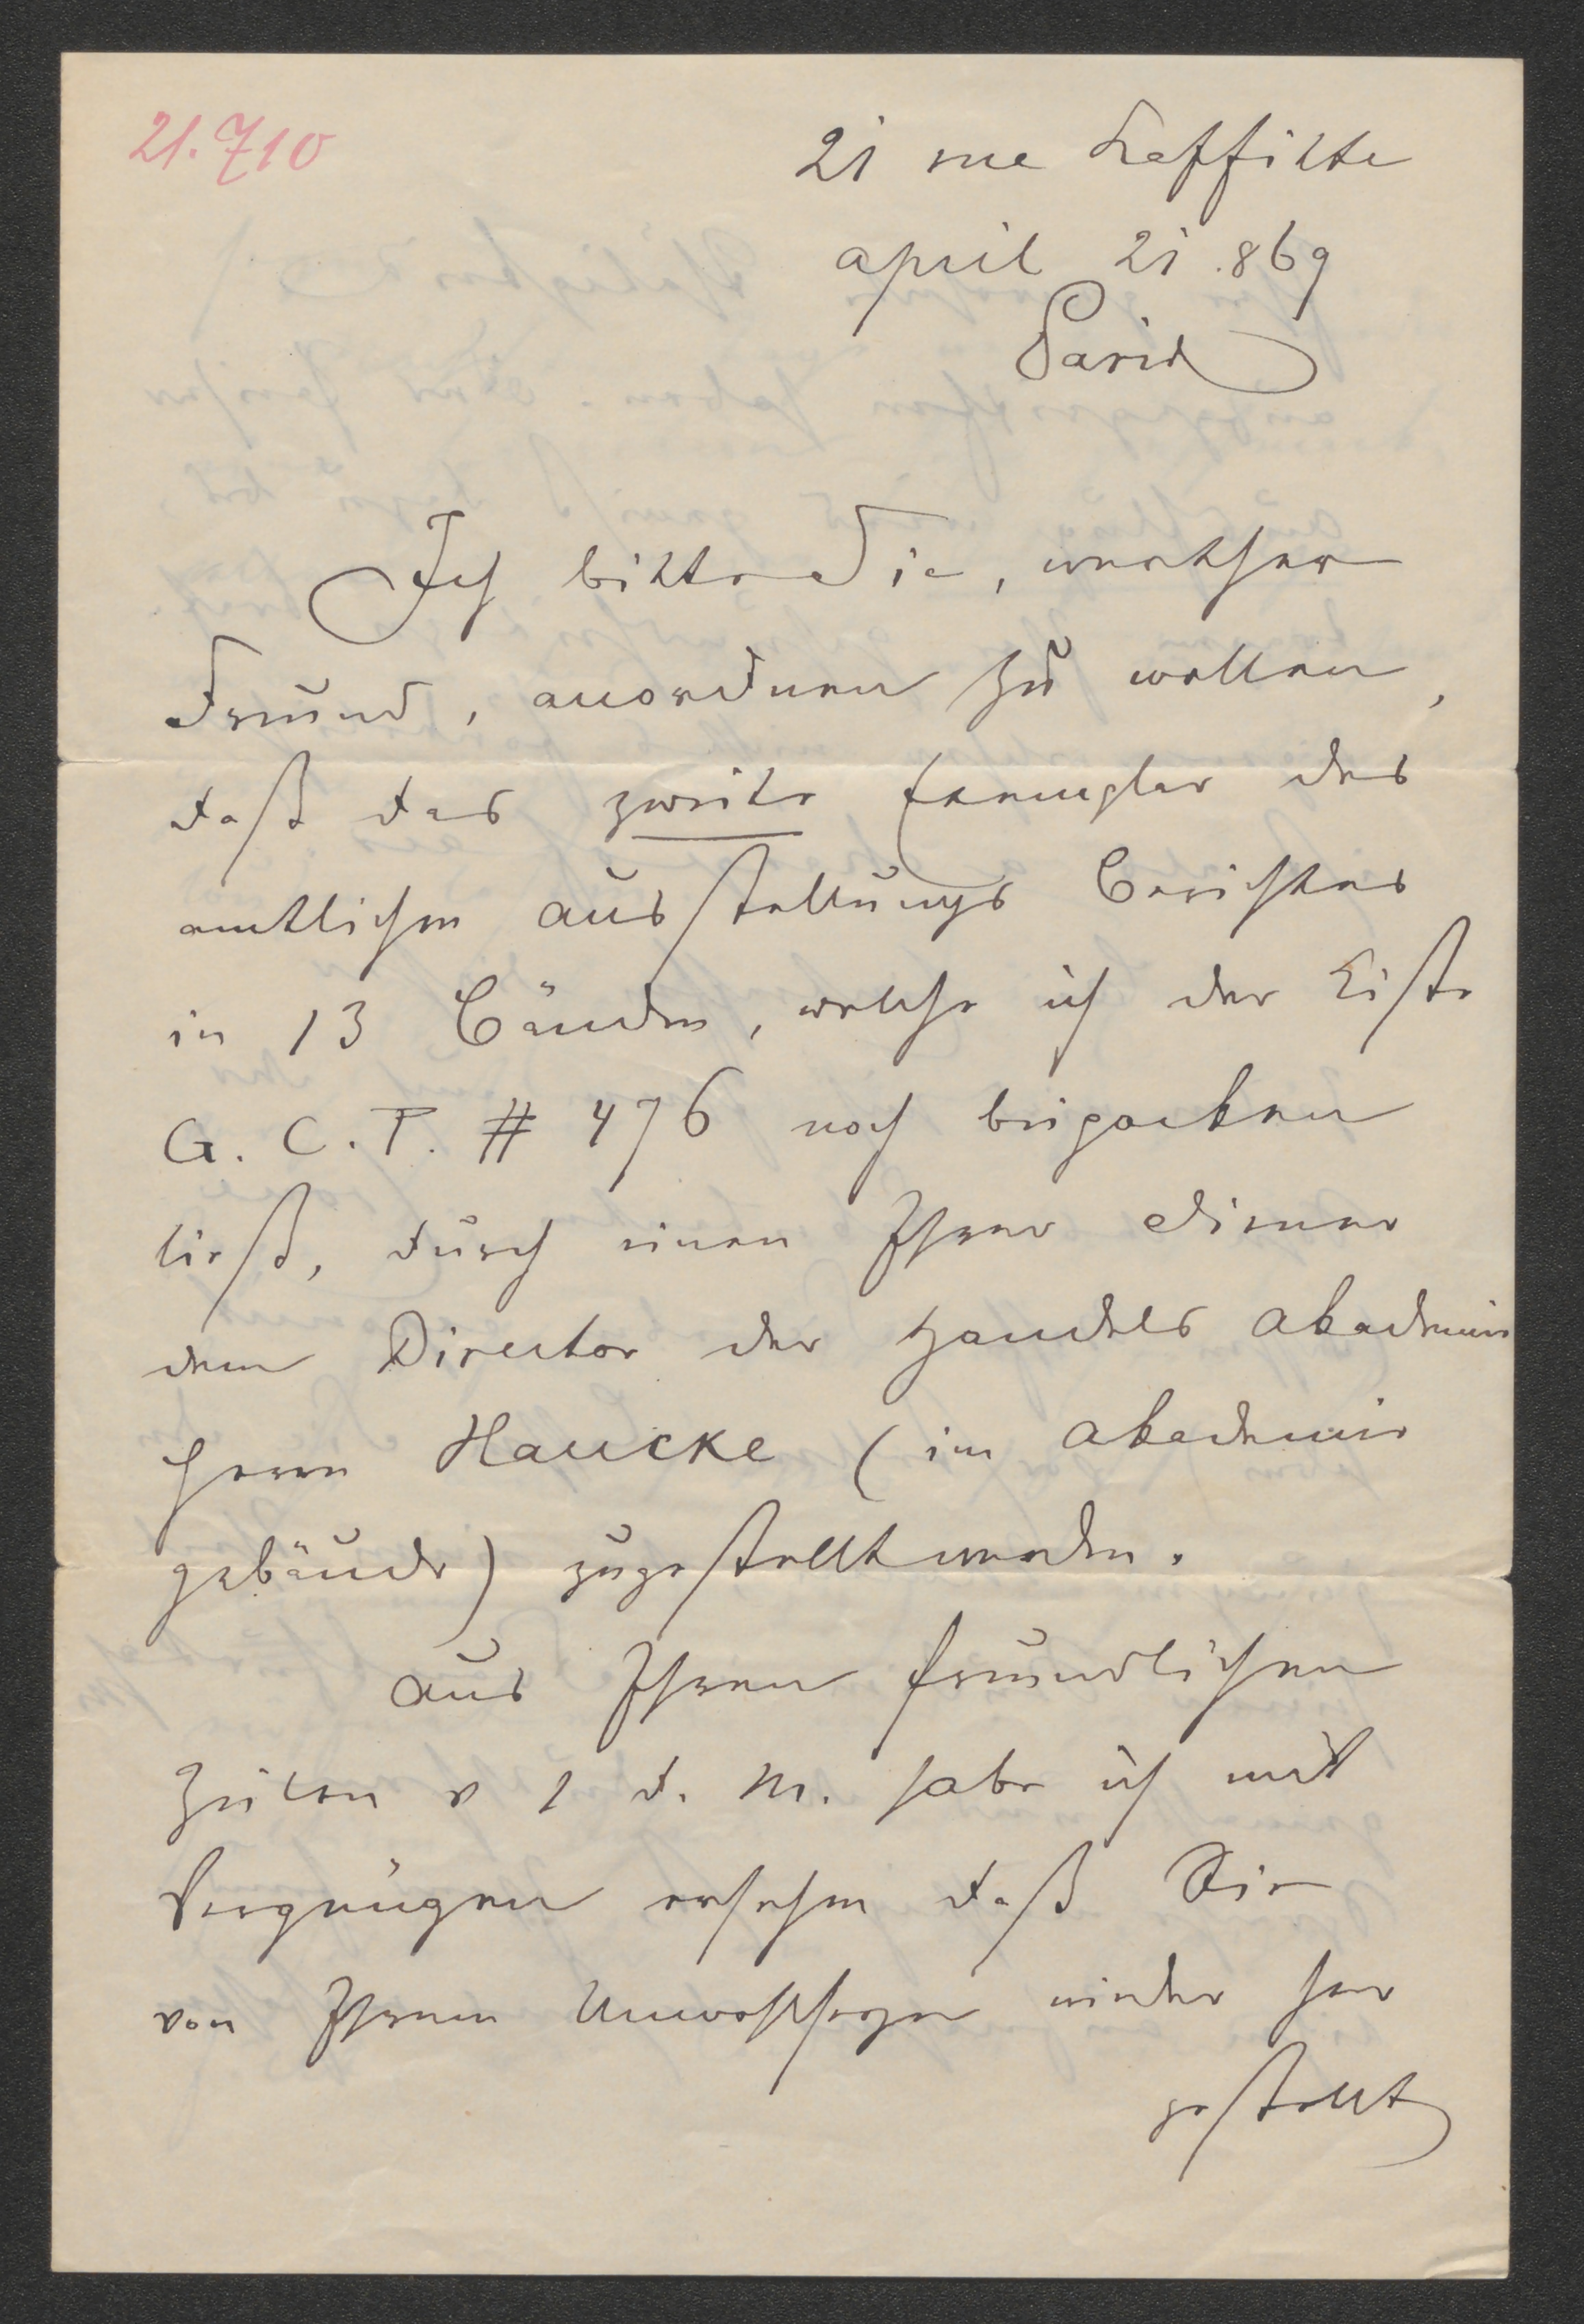 21.710
21 rue Laffitte
april 21 .869
Paris
Ich bitte Sie, werther
Freund, anordnen zu wollen,
daß das zweite Exemplar des
amtlichen Ausstellungs Berichtes
in 13 Bänden, welche ich der Kiste
G. C. T. # 476 noch beipacken
ließ, durch einen Ihrer Diener
dem Director der Handels Akademie
Herrn Haucke (im Akademie
gebäude) zugestellt werden.
Aus Ihren freundlichen
Zeilen v 1 d. M. habe ich mit
Vergnügen ersehen daß Sie
von Ihrem Unwohlsein wieder her
gestellt